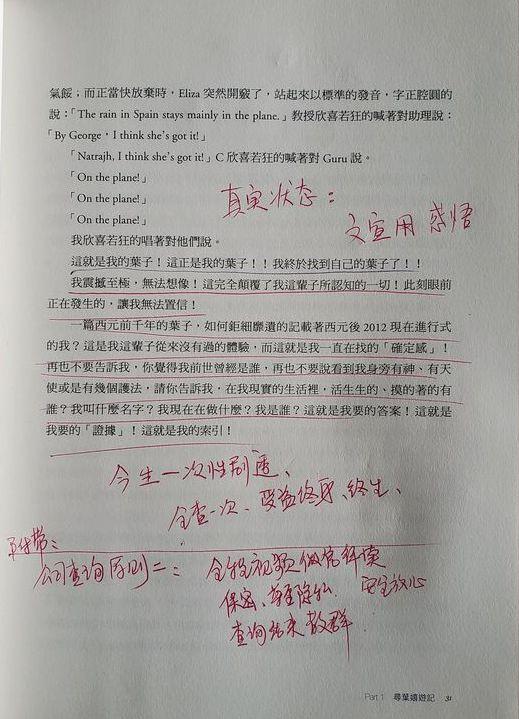 氣餒；而正當快放棄時，Eliza 突然開竅了，站起來以標準的發音，字正腔圓的
說：「The rain in Spain stays mainly in the plane.」教授欣喜若狂的喊著對助理說：
「By George，I think she's got it!」
「Natrajh, I think she's got it!」C 欣喜若狂的喊著對 Guru 說。
「On the plane!」
「On the plane!」
「On the plane!」
真实状态：
文宣用 感悟
我欣喜若狂的唱著對他們說。
這就是我的葉子！這正是我的葉子！！我終於找到自己的葉子了！！
我震撼至極，無法想像！這完全顛覆了我這輩子所認知的一切！此刻眼前
正在發生的，讓我無法置信！
一篇西元前千年的葉子，如何鉅細靡遺的記載著西元後 2012 現在進行式
的我？這是我這輩子從來沒有過的體驗，而這就是我一直在找的「確定感」！
再也不要告訴我，你覺得我前世曾經是誰，再也不要說看到我身旁有神、有天
使或是有幾個護法，請你告訴我，在我現實的生活裡，活生生的、摸的著的有
誰？我叫什麼名字？我現在在做什麼？我是誰？這就是我要的答案！這就是
我要的「證據」！這就是我的索引！
今生一次性剧透、
全查一次、受益终身、终生、
公司查询原则二：全程视频
保密、 安全放心
查询结束散群
Part 1 尋葉嬉遊記 31